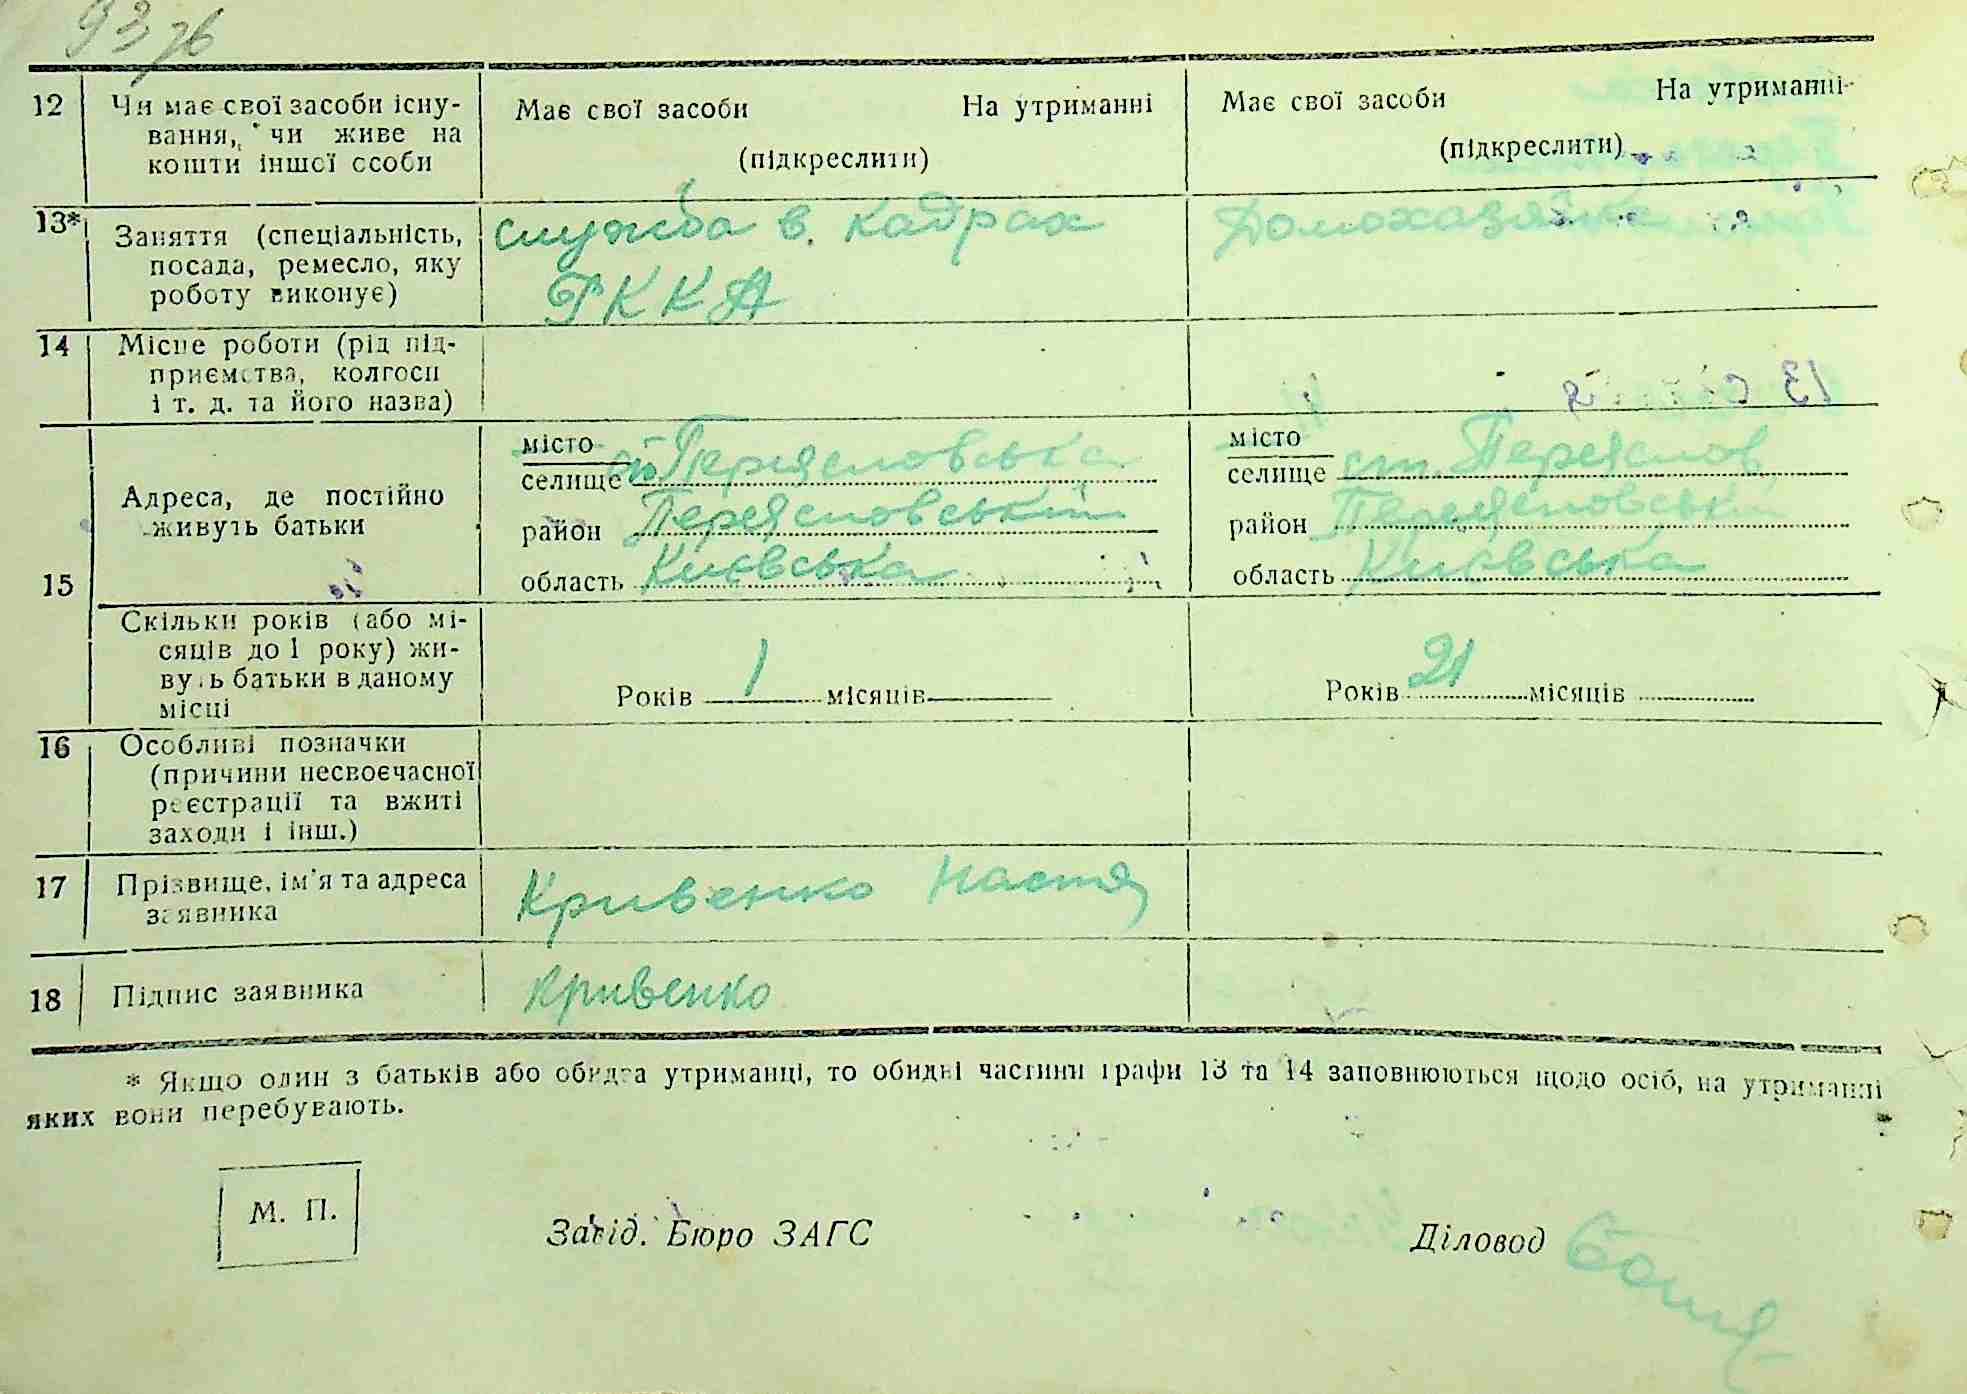 93 зв
12 Чи має свої засоби існу-
вання, чи живе на
кошти іншої особи
Має свої засоби На утриманні
(підкреслити)
Має свої засоби На утриманні
(підкреслити)
13* Заняття (спеціальність,
посада, ремесло, яку
роботу виконує)
служба в кадрах
РККА
Домохазяйка
14 Місце роботи (рід під-
приємства, колгосп
і т. д. та його назва)
15
Адреса, де постійно
живуть батьки
місто
селище Переясловська
район Переясловський
область Київська
місто
селище ст. Переяслов
район Переясловський
область Київська
Скільки років (або мі-
сяців до 1 року) жи-
вуть батьки в даному
місці
Років 1 місяців
Років 21 місяців
16 Особливі позначки
(причини несвоєчасної
реєстрації та вжиті
заходи і інш.)
17 Прізвище, ім'я та адреса
заявника
Кривенко Настя
18 Підпис заявника
Кривенко
* Якщо один з батьків або обидва утриманці, то обидві частини графи 13 та 14 заповнюються щодо осіб, на утриманні
яких вони перебувають.
М. П.
Завід. Бюро ЗАГС
Діловод